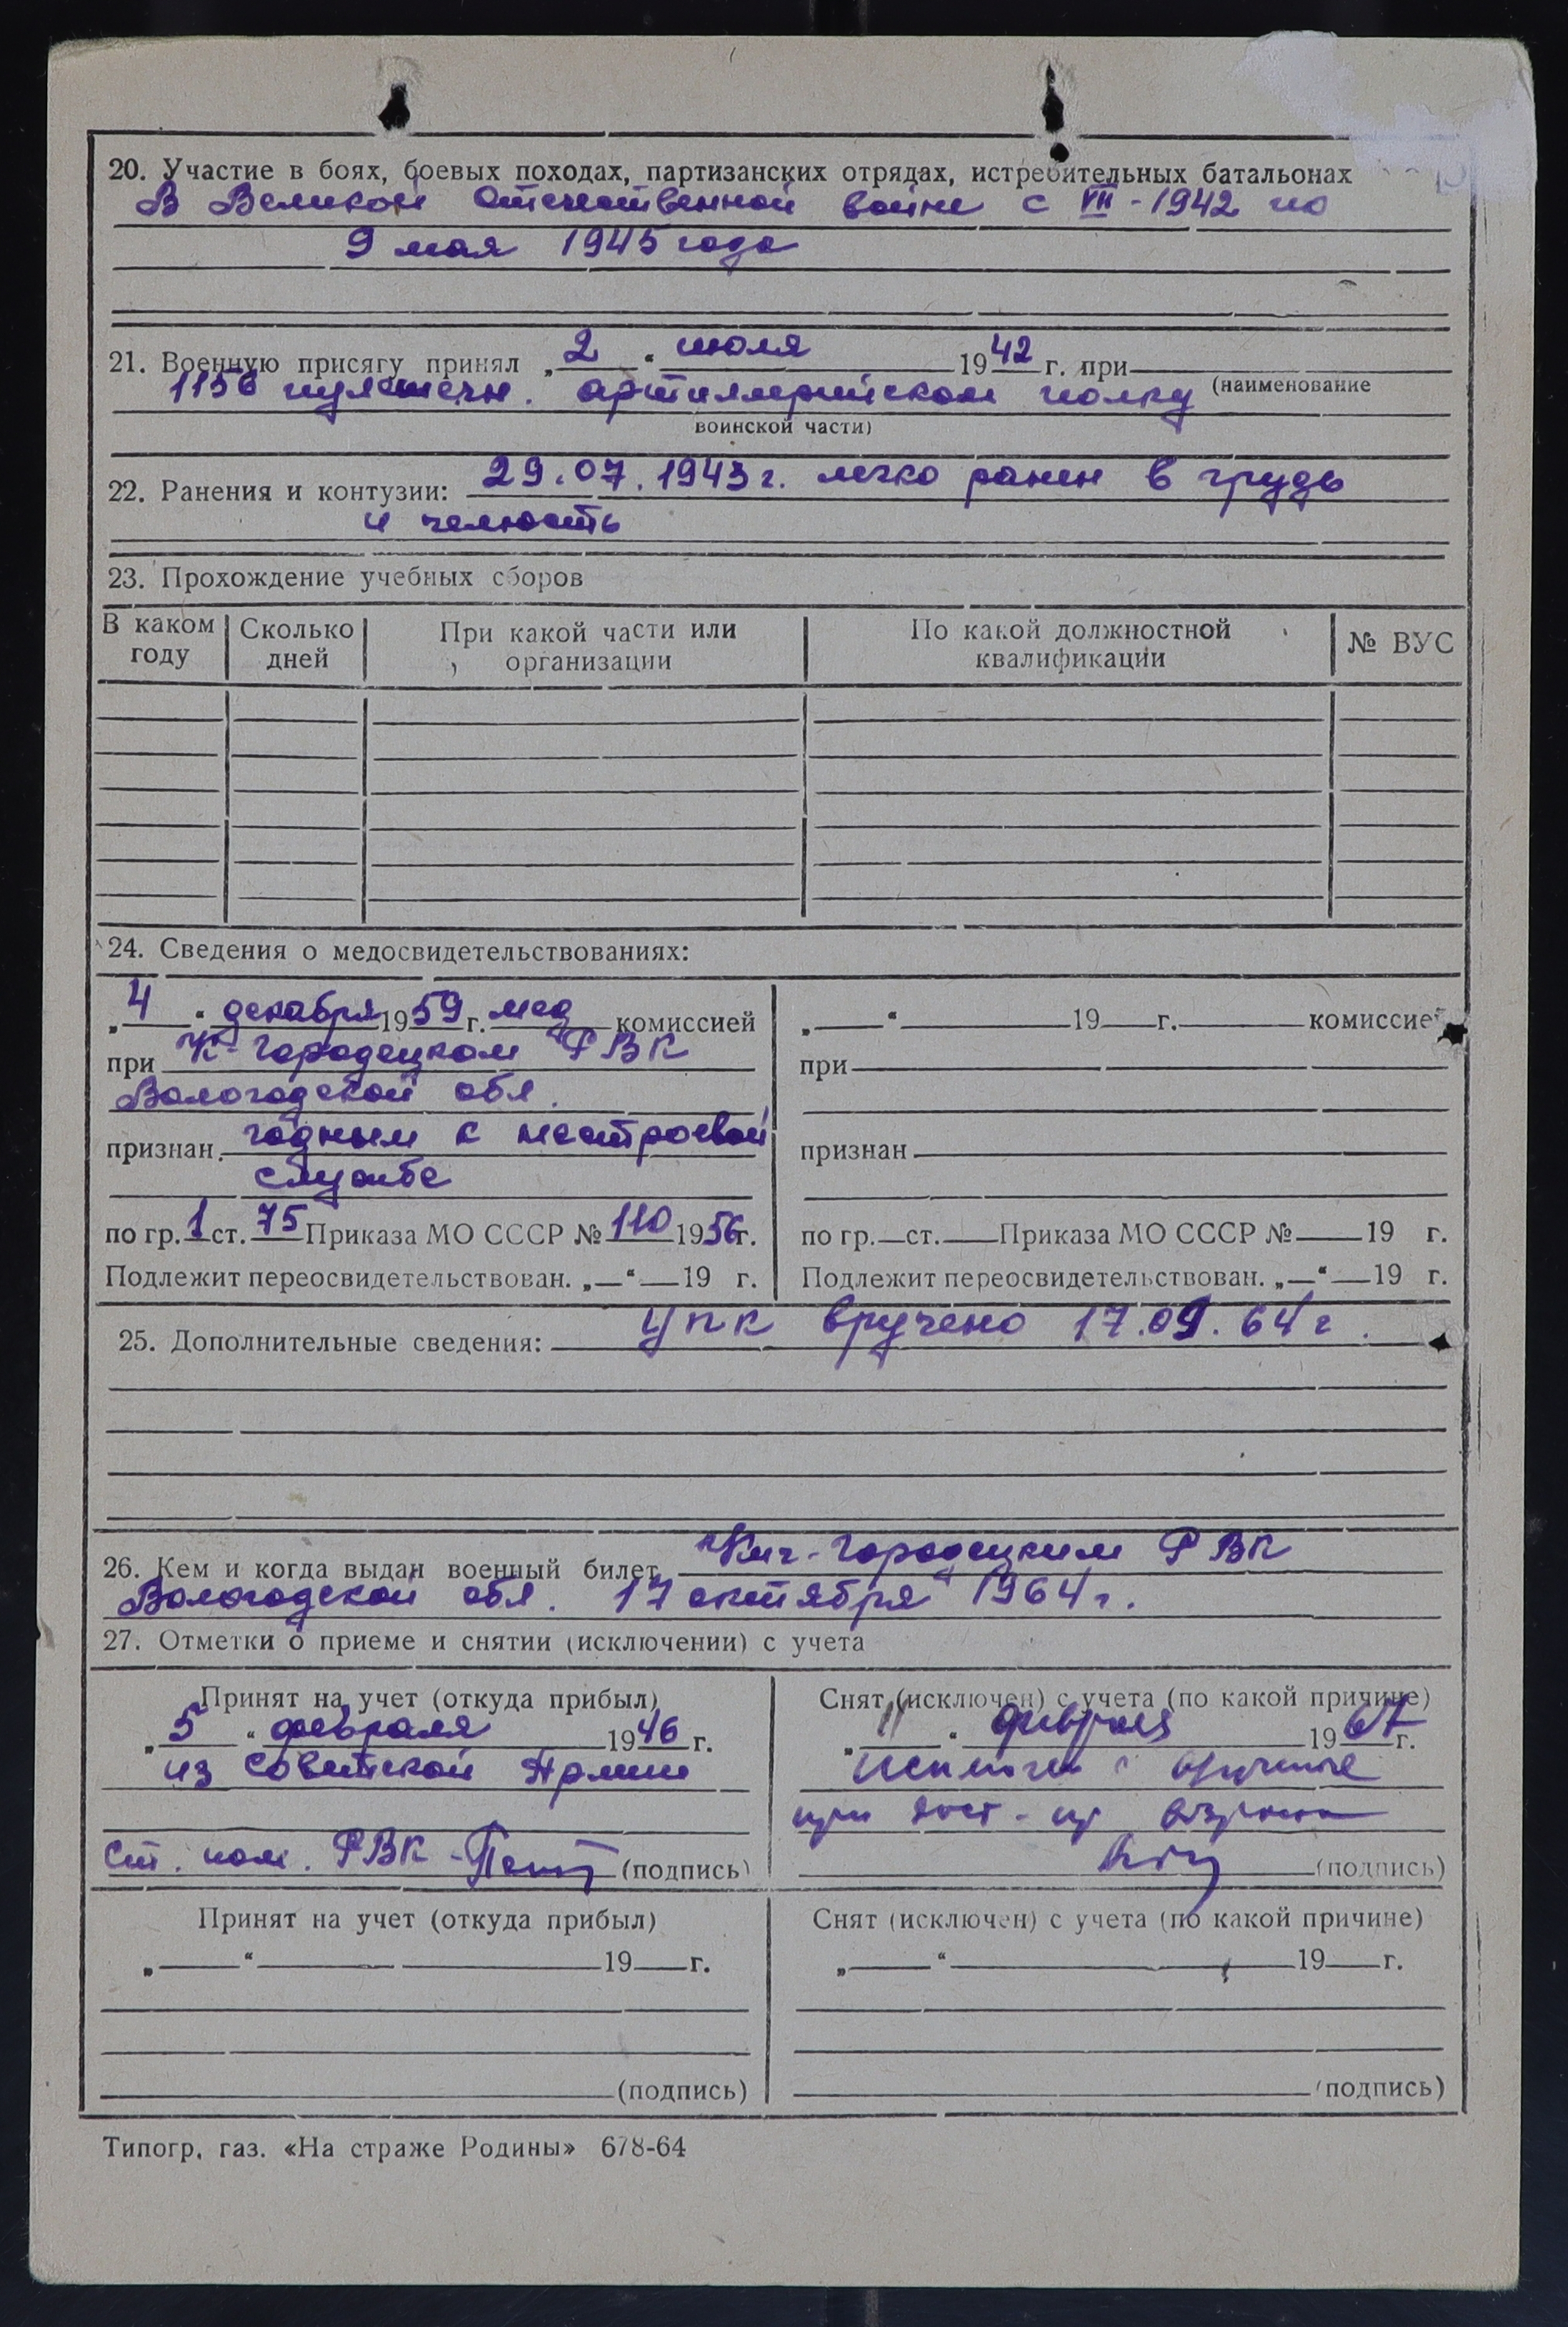 20. Участие в боях, боевых походах, партизанских отрядах, истребительных батальонах
В Великой Отечественной войне с VII - 1942 по
9 мая 1945 года
21. Военную присягу принял „2“ июля 1942 г. при
1156 пулеметн. артиллерийском полку (наименование
воинской части)
22. Ранения и контузии: 29.07.1943 г. легко ранен в грудь
и челюсть
23. Прохождение учебных сборов
В каком году
Сколько дней
При какой части или организации
По какой должностной квалификации
№ ВУС
24. Сведения о медосвидетельствованиях:
„4“ декабря 1959 г. мед комиссией
при К-Городецком РВК
Вологодской обл.
признан годным к нестроевой
службе
по гр. 1 ст. 75 Приказа МО СССР № 110 1956 г.
Подлежит переосвидетельствован. „ “ 19 г.
„ “ 19 г. комиссией
при
признан
по гр. ст. Приказа МО СССР № 19 г.
Подлежит переосвидетельствован. „ “ 19 г.
25. Дополнительные сведения: УПК вручено 17.09.64 г.
26. Кем и когда выдан военный билет Кич-Городецким РВК
Вологодской обл. 17 октября 1964 г.
27. Отметки о приеме и снятии (исключении) с учета
Принят на учет (откуда прибыл)
„5“ февраля 1946 г.
из Советской Армии
Ст. пом. РВК (подпись)
Снят (исключен) с учета (по какой причине)
„11“ февраля 1967 г.
исключен с
при возраста
(подпись)
Принят на учет (откуда прибыл)
„ “ 19 г.
(подпись)
Снят (исключен) с учета (по какой причине)
„ “ 19 г.
(подпись)
Типогр. газ. «На страже Родины» 678-64